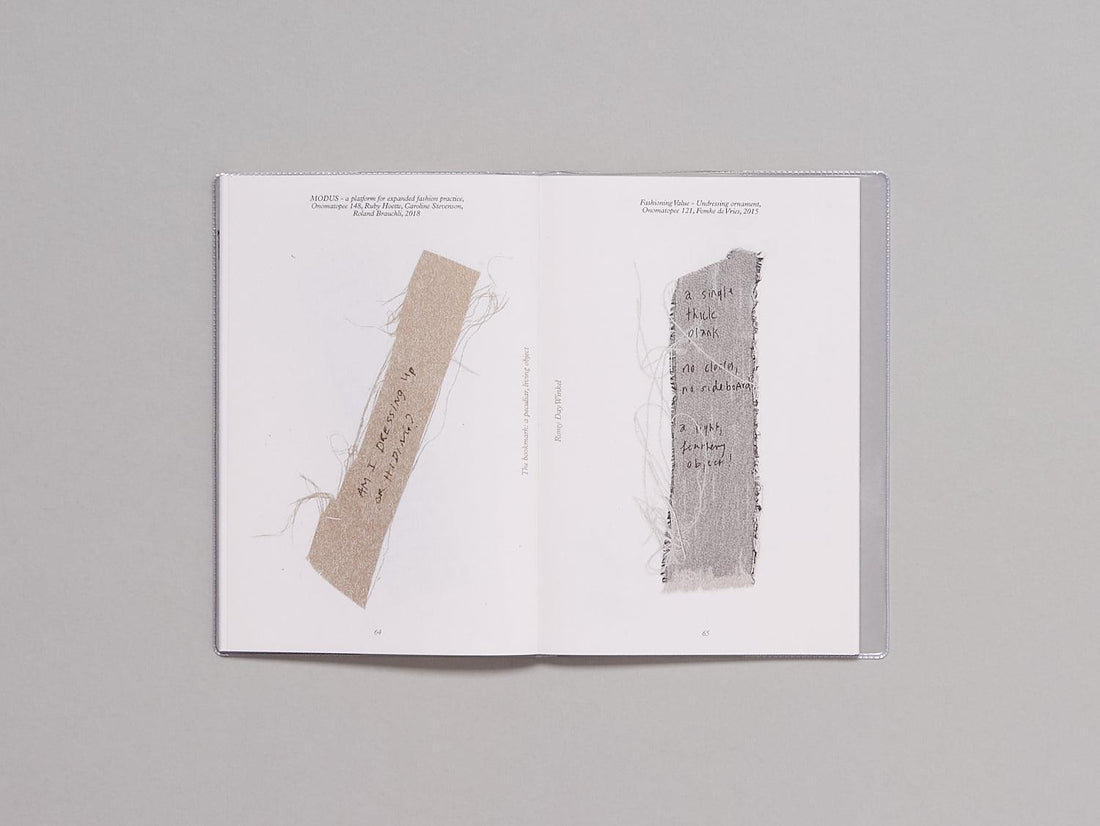 MODUS - a platform for expanded fashion practice,
Onomatopee 148, Ruby Hoette, Caroline Stevenson,
Roland Brauchli, 2018
AM I DRESSING UP
OR HIDING?
64
The bookmark: a peculiar, living object
Ronny Day Winkel
Fashioning Value - Undressing ornament,
Onomatopee 121, Femke de Vries, 2015
a single
thick
plank
no cloth,
no sideboard
a light,
feathery
object!
65